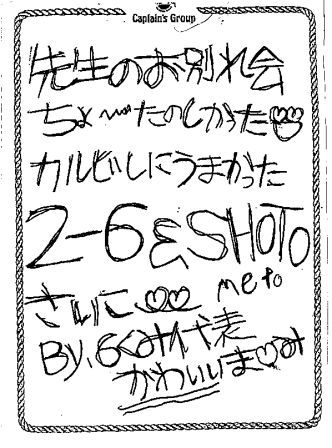 Captain's Group
先生のお別れ会
ちょ〜たのしかった
カルビしにうまかった
2-6&SHOTO
さいこー
meto
By.6くみ代表
かわいいま♡み